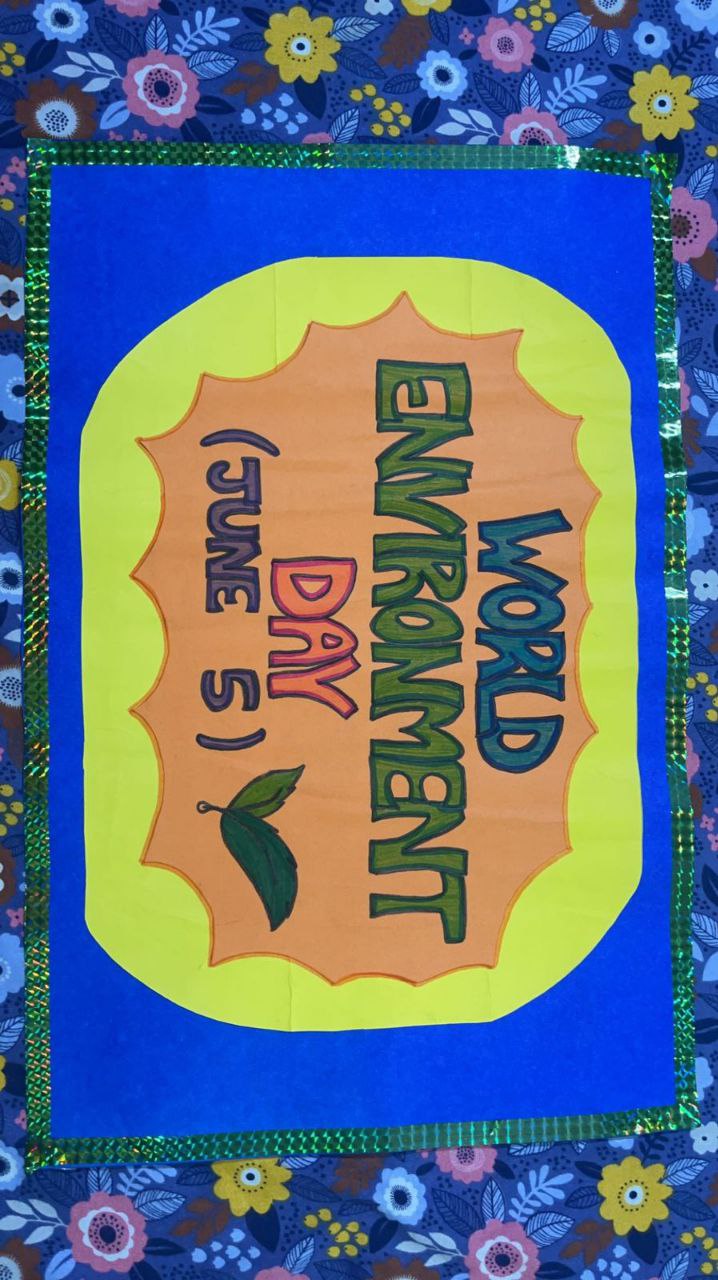 WORLD
ENVIRONMENT
DAY
(JUNE 5)